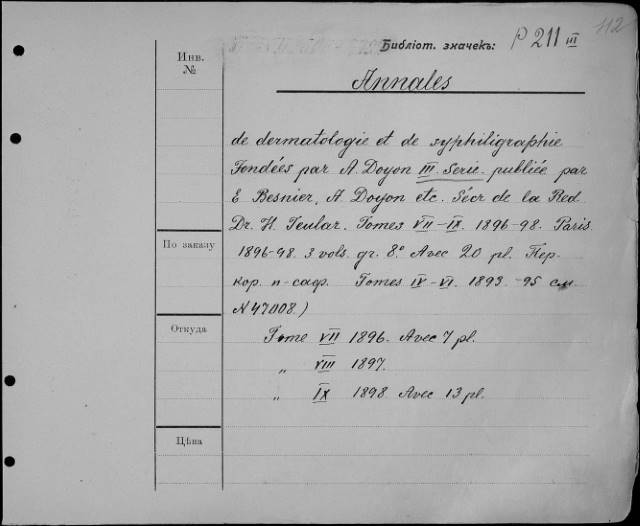 112
Библіот. значекъ: P 211 III
Инв.
№
Annales
de dermatologie et de syphiligraphie
Fondées par A. Doyon III. Serie. publiée par
E Besnier, A. Doyon etc. Sécr de la Red
Dr. H. Feulard. Tomes VII–IX. 1896–98. Paris
По заказу
1896–98. 3 vols. gr. 8.° Avec 20 pl. Пер.
кор. п-саф. Tomes IV–VI. 1893–95 см.
N 47008.)
Откуда
Tome VII 1896. Avec 7 pl.
„ VIII 1897.
„ IX 1898 Avec 13 pl.
Цѣна